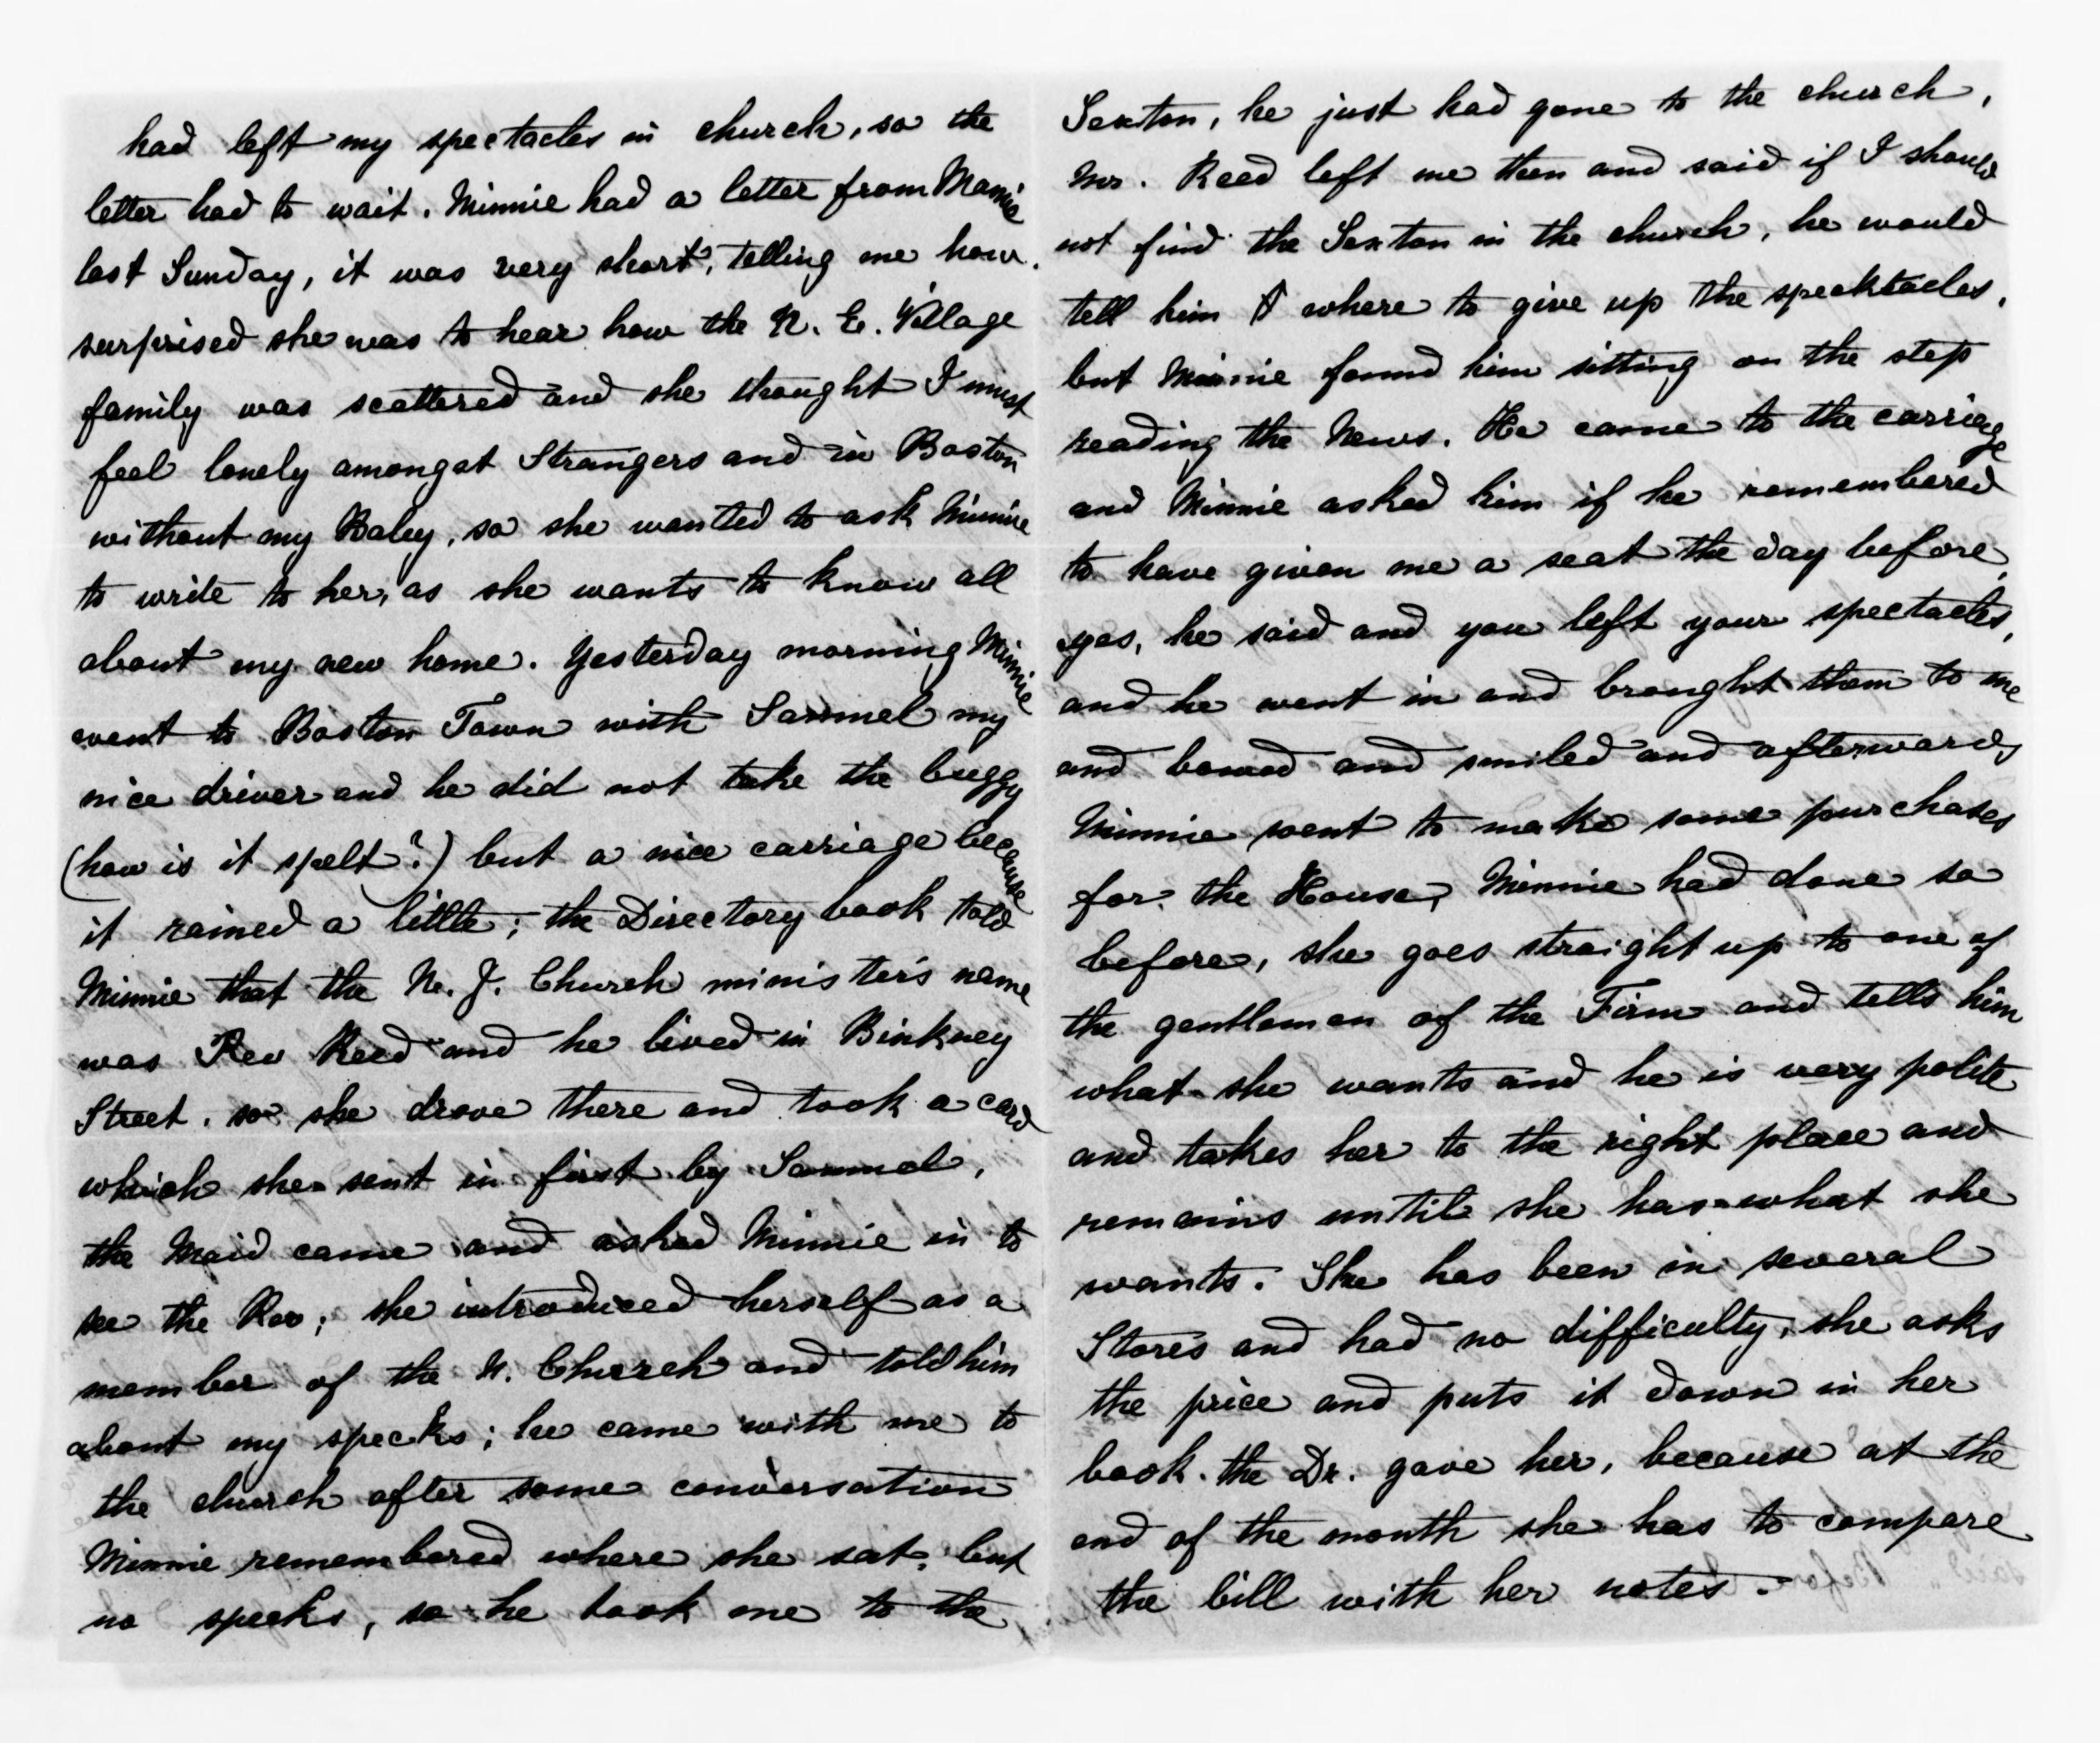 had left my spectacles in church, so the
letter had to wait. Minnie had a letter from Mamie
last Sunday, it was very short, telling me how
surprised she was to hear how the N. E. Village
family was scattered and she thought I must
feel lonely amongst Strangers and in Boston
without my Baley, so she wanted to ask Minnie
to write to her, as she wants to know all
about my new home. Yesterday morning Minnie
went to Boston Town with Sammel my
nice driver and he did not take the buggy
(how is it spelt?) but a nice carriage because
it rained a little; the Directory book told
Minnie that the N. J. Church minister's name
was Rev Reed and he lived in Binkney
Street. so she drove there and took a card
which she sent in first by Sammel,
the Maid came and asked Minnie in to
see the Rev; she introduced herself as a
member of the N. Church and told him
about my specks; he came with me to
the church after some conversation
Minnie remembered where she sat, but
no specks, so he took me to the
Sexton, he just had gone to the church,
Mr. Reed left me then and said if I should
not find the Sexton in the church, he would
tell him where to give up the specktacles,
but Minnie found him sitting on the step
reading the News. He came to the carriage
and Minnie asked him if he remembered
to have given me a seat the day before,
yes, he said and you left your spectacles,
and he went in and brought them to me
and bowed and smiled and afterwards
Minnie went to make some purchases
for the House, Minnie had done so
before, she goes straight up to one of
the gentlemen of the Firm and tells him
what she wants and he is very polite
and takes her to the right place and
remains until she has what she
wants. She has been in several
Stores and had no difficulty, she asks
the price and puts it down in her
book the Dr. gave her, because at the
end of the month she has to compare
the bill with her notes.